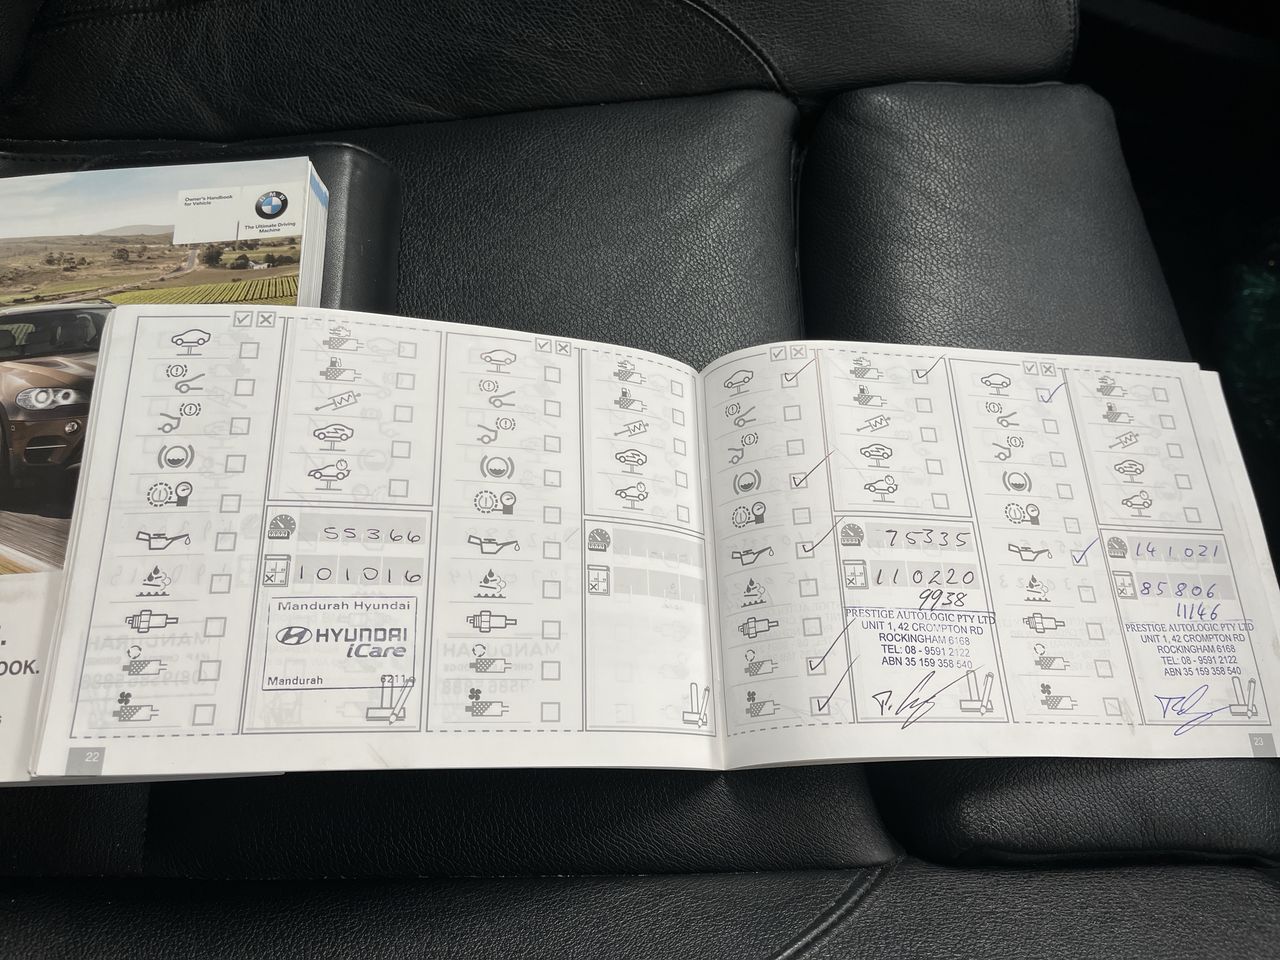 Owner's Handbook
for Vehicle
BMW
The Ultimate Driving
Machine
OOK.
55366
101016
Mandurah Hyundai
HYUNDAI
iCare
Mandurah
22
75335
110220
9938
PRESTIGE AUTOLOGIC PTY LTD
UNIT 1, 42 CROMPTON RD
ROCKINGHAM 6168
TEL: 08 - 9591 2122
ABN 35 159 358 540
141021
85806
11146
PRESTIGE AUTOLOGIC PTY LTD
UNIT 1, 42 CROMPTON RD
ROCKINGHAM 6168
TEL: 08 - 9591 2122
ABN 35 159 358 540
23